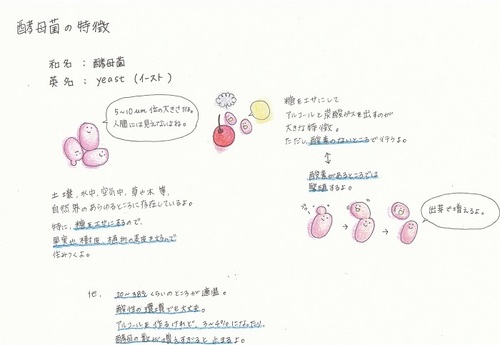 酵母菌の特徴
和名：酵母菌
英名：yeast（イースト）
5〜10μm位の大きさだよ。
人間には見えないよね。
糖をエサにして
アルコールと炭酸ガスを出すのが
大きな特徴。
ただし、酸素のないところでイケテるよ。
酸素があるところでは
繁殖するよ。
土壌、水中、空気中、草や木等、
自然界のあらゆるところに存在しているよ。
特に、糖をエサにするので、
果実や樹液、植物の
住みつくよ。
出芽で増えるよ。
他、
くらいのところが適温。
酸性の環境でも大丈夫。
アルコールを作るけれど、
酵母の数が増えすぎると止まるよ。